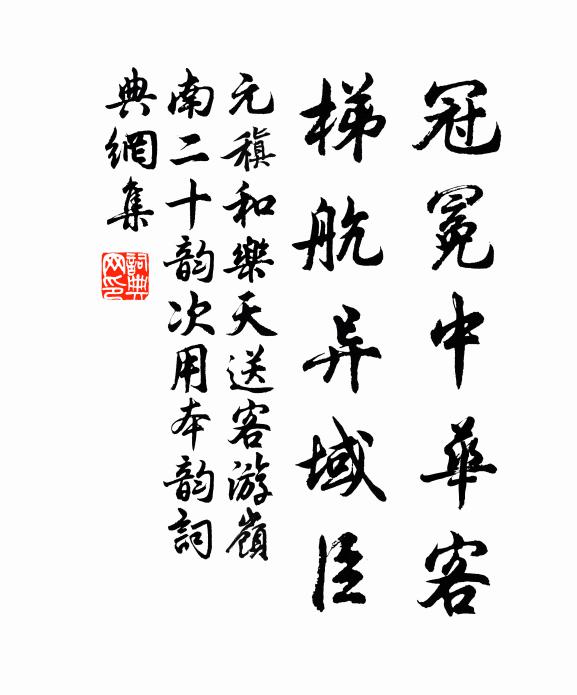 冠冕中華客
梯航异域臣
元稹和樂天送客游嶺
南二十韵次用本韵詞
典網集
詞典网印